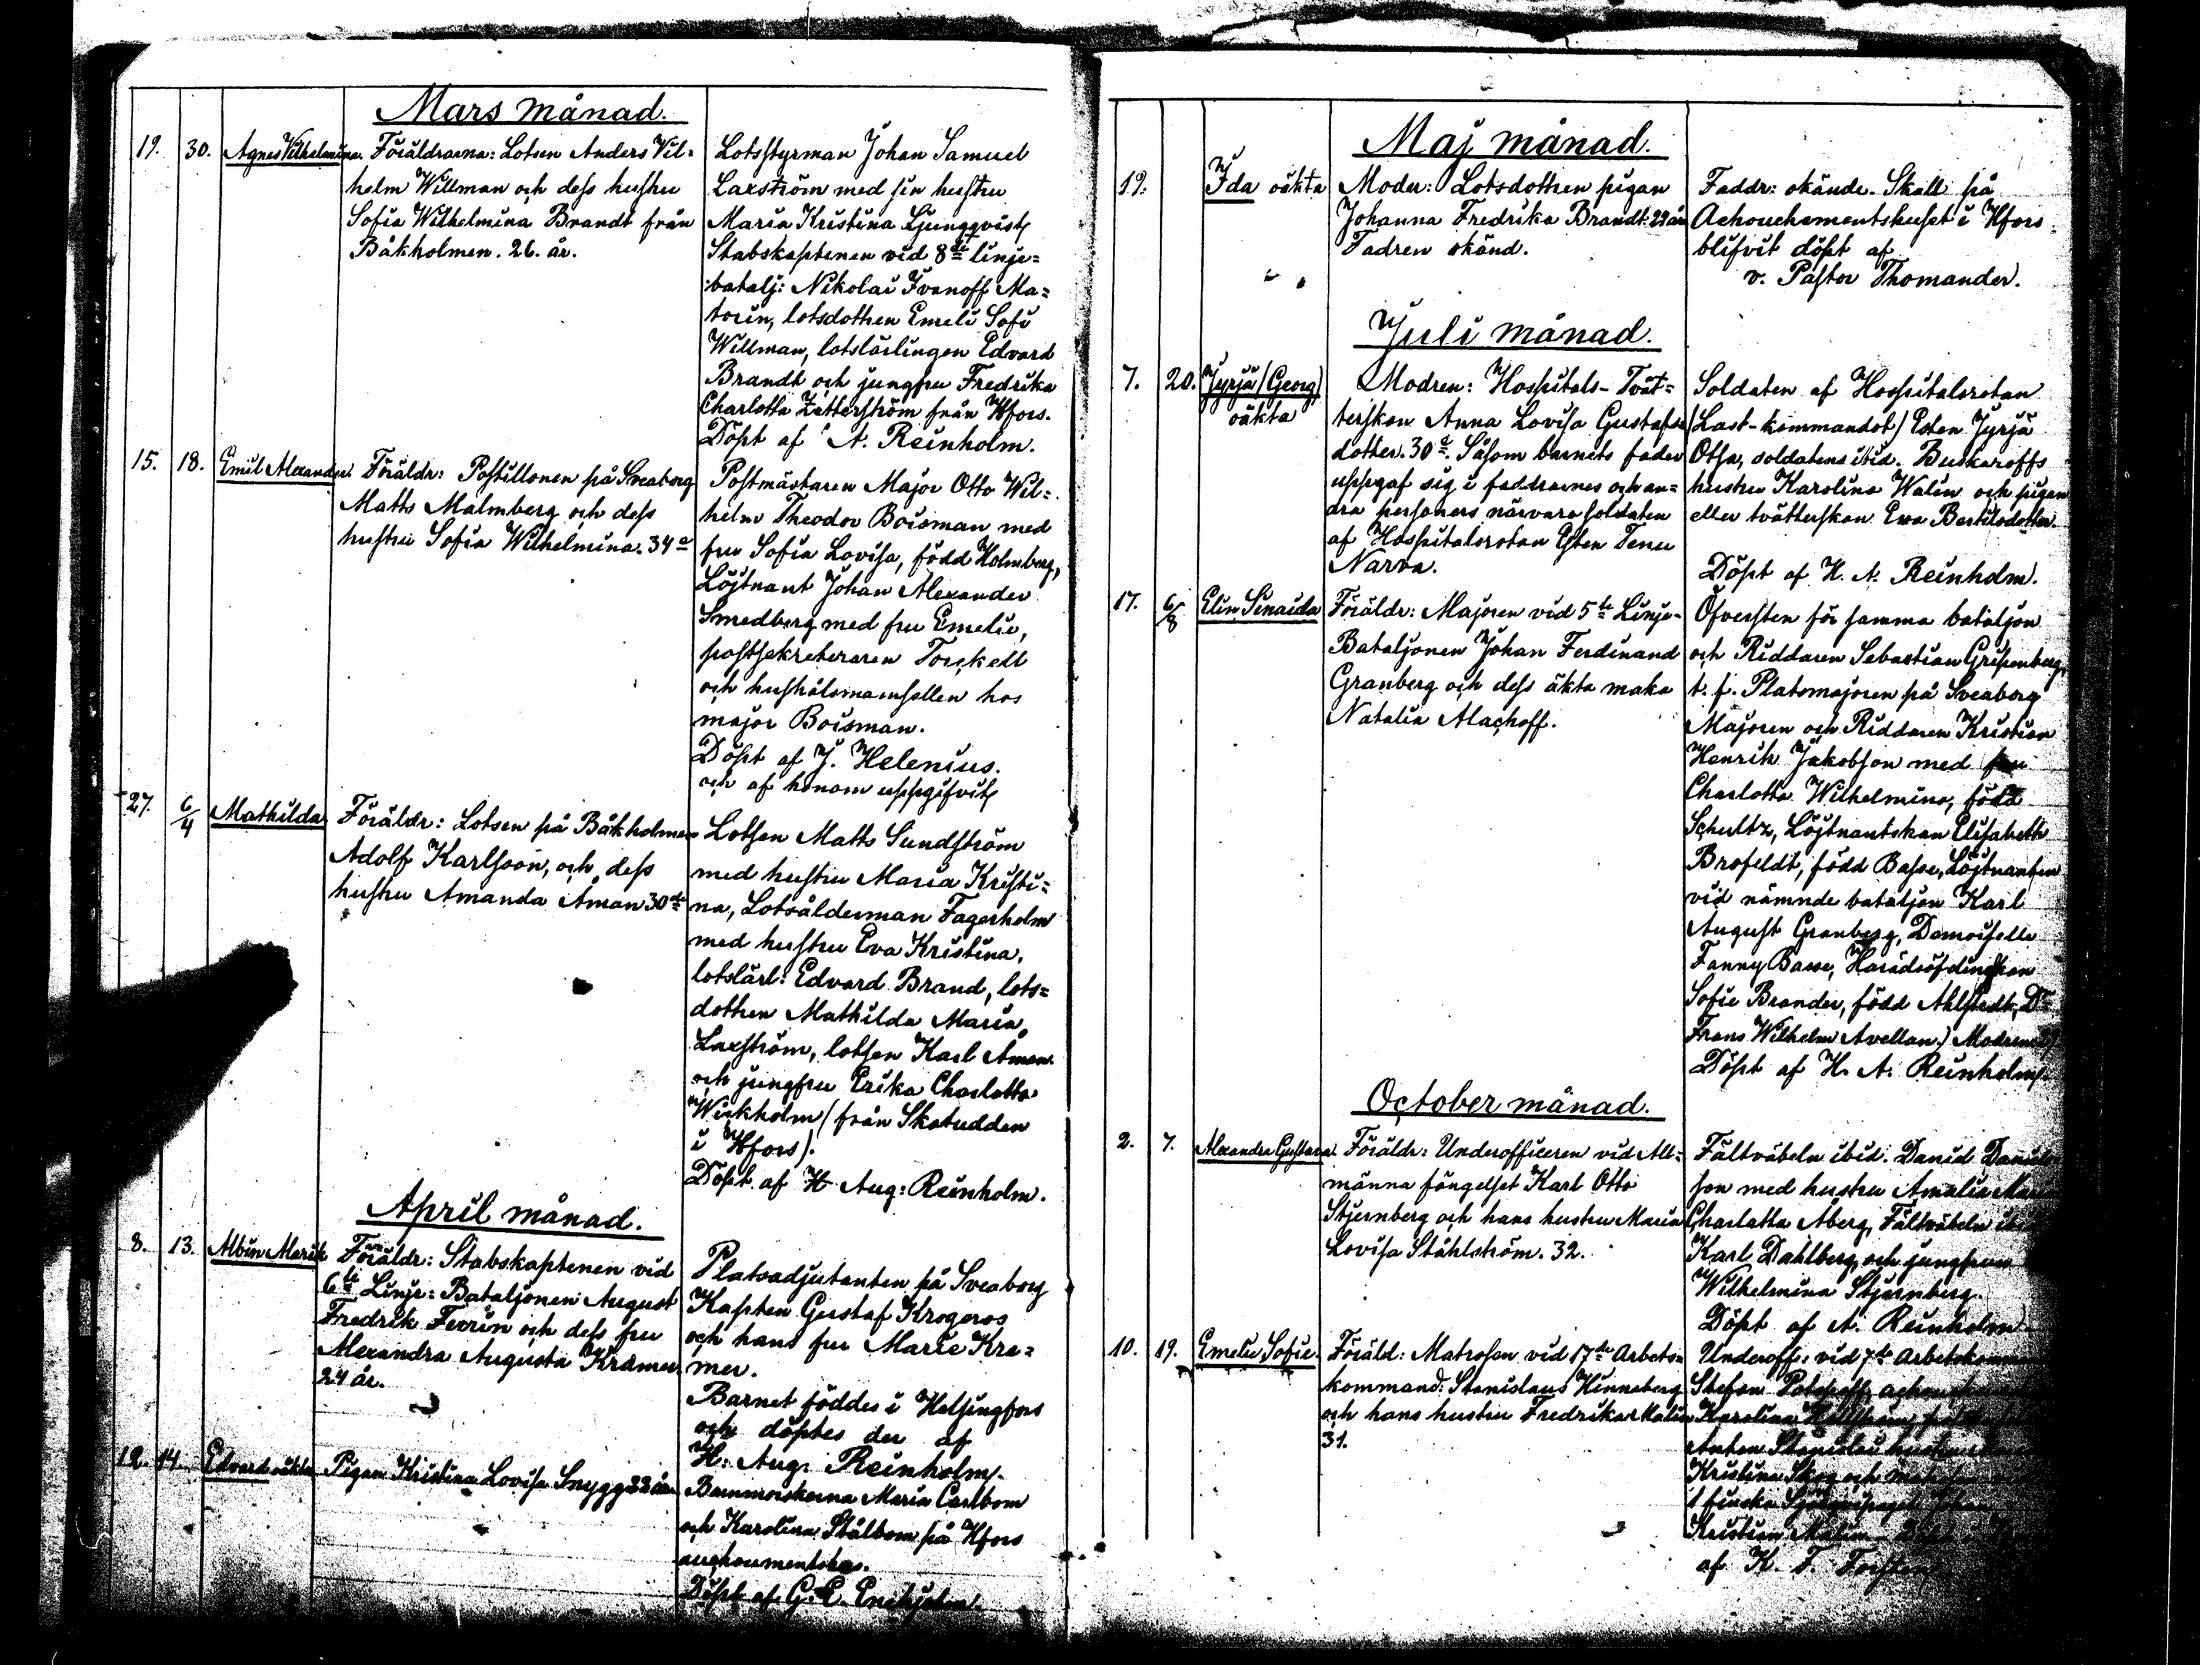 Mars månad.
19. 30. Agnes Vilhelmina. Föräldrarna: Lotsen Anders Vil=
helm Willman och dess hustru
Sofia Wilhelmina Brandt från
Båkholmen. 26. år.
Lotsstyrman Johan Samuel
Laxström med sin hustru
Maria Kristina Ljungqvist,
Stabskaptenen vid 8de linje=
batalj: Nikolai Ivanoff Ma=
torin, lotsdottren Emeli Sofi
Willman, lotslärlingen Edvard
Brandt och jungfru Fredrika
Charlotta Zetterström från Hfors.
Döpt af A. Reinholm.
15. 18. Emil Alexander. Föräldr: Postillonen på Sveaborg
Matts Malmberg och dess
hustru Sofia Wilhelmina. 34 a
Postmästaren Major Otto Wil=
helm Theodor Boisman med
fru Sofia Lovisa, född Holmberg,
Löjtnant Johan Alexander
Smedberg med fru Emelie,
postsekreteraren Torckell
och hushålsmamsellen hos
major Boisman.
Döpt af J. Helenius.
och af honom uppgifvit,
27. 6/4 Mathilda Föräldr: Lotsen på Båkholmen
Adolf Karlsson, och dess
hustru Amanda Åman 30
Lotsen Matts Sundström
med hustru Maria Kristi=
na, Lotsålderman Fagerholm
med hustru Eva Kristina,
lotslärl: Edvard Brand, lots=
dottren Mathilda Maria
Laxström, lotsen Karl Åman
och jungfru Erika Charlotta
Wickholm (från Skatudden
i Hfors).
Döpt af H Aug: Reinholm.
April månad.
8. 13. Albin Föräldr: Stabskaptenen vid
6te Linje: Bataljonen August
Fredrik Ferrin och dess fru
Alexandra Augusta Krämer
24 år.
Platsadjutanten på Sveaborg
Kapten Gustaf Krogeros
och hans fru Marie Kre=
mer.
Barnet föddes i Helsingfors
och döptes der af
H. Aug: Reinholm.
12. 14. Edvard oäkta Pigan Kristina Lovisa Snygg 22 år
Barnmorskorna Maria Carlbom
och Karolina Stålbom på Hfors
Döpt af G. E.
Maj månad.
19. Ida oäkta Moder: Lotsdottren pigan
Johanna Fredrika Brandt 22 år
Fadren okänd.
Faddr: okände. Skall på
Achouchementshuset i Hfors
blifvit döpt af
v. Pastor Thomander.
Juli månad.
7. 20. Jyrjä (Georg)
oäkta
Modren: Hospitals-Tvät=
terskan Anna Lovisa Gustafs=
dotter. 30 a. Såsom barnets fader
uppgaf sig i faddrarnes och an=
dra personers närvaro soldaten
af Hospitalsrotan Esten Tenu
Narva.
Soldaten af Hospitalsrotan
(Last-kommandot) Esten Jyrjä
Otsa, soldatens ibid. Buskaroffs
hustru Karolina Walin och pigan
eller tvätterskan Eva Bertilsdotter.
Döpt af H. A. Reinholm.
17. 6/8 Elin Senaida Föräldr: Majoren vid 5te Linje-
Bataljonen Johan Ferdinand
Granberg och dess äkta maka
Natalia Alachoff.
Öfversten för samma bataljon
och Riddaren Sebastian Gripenberg,
t. f. Platsmajoren på Sveaborg
Majoren och Riddaren Kristian
Henrik Jakobson med fru
Charlotta Wilhelmina, född
Schultz, Löjtnantskan Elisabeth
Brofeldt, född Basse, Löjtnanten
vid nämnde bataljon Karl
August Granberg, Demoiselle
Fanny Basse, Häradshöfdingskan
Sofie Brander, född Ahlstedt, Dr
Frans Wilhelm Avellan.) Modren
Döpt af H. A. Reinholm.
October månad.
2. 7. Alexandra Gustava Föräldr: Underofficeren vid All=
männa fängelset Karl Otto
Stjernberg och hans hustru Maria
Lovisa Ståhlström. 32.
Fältväbeln ibid. Danid
son med hustru Amalia Maria
Charlotta Åberg, Fältväbeln
Karl Dahlberg och jungfrun
Wilhelmina Stjernberg.
Döpt af A. Reinholm
10. 19. Emelie Sofie. Föräld: Matrosen vid 17de Arbets=
kommand: Stanislaus Hinneberg
och hans hustru Fredrika Malin
31.
Underoff: vid 7de
Stefan
Karolina
Anton
Kristina Skog och
1 finska
Kristian Malin
af K. F.